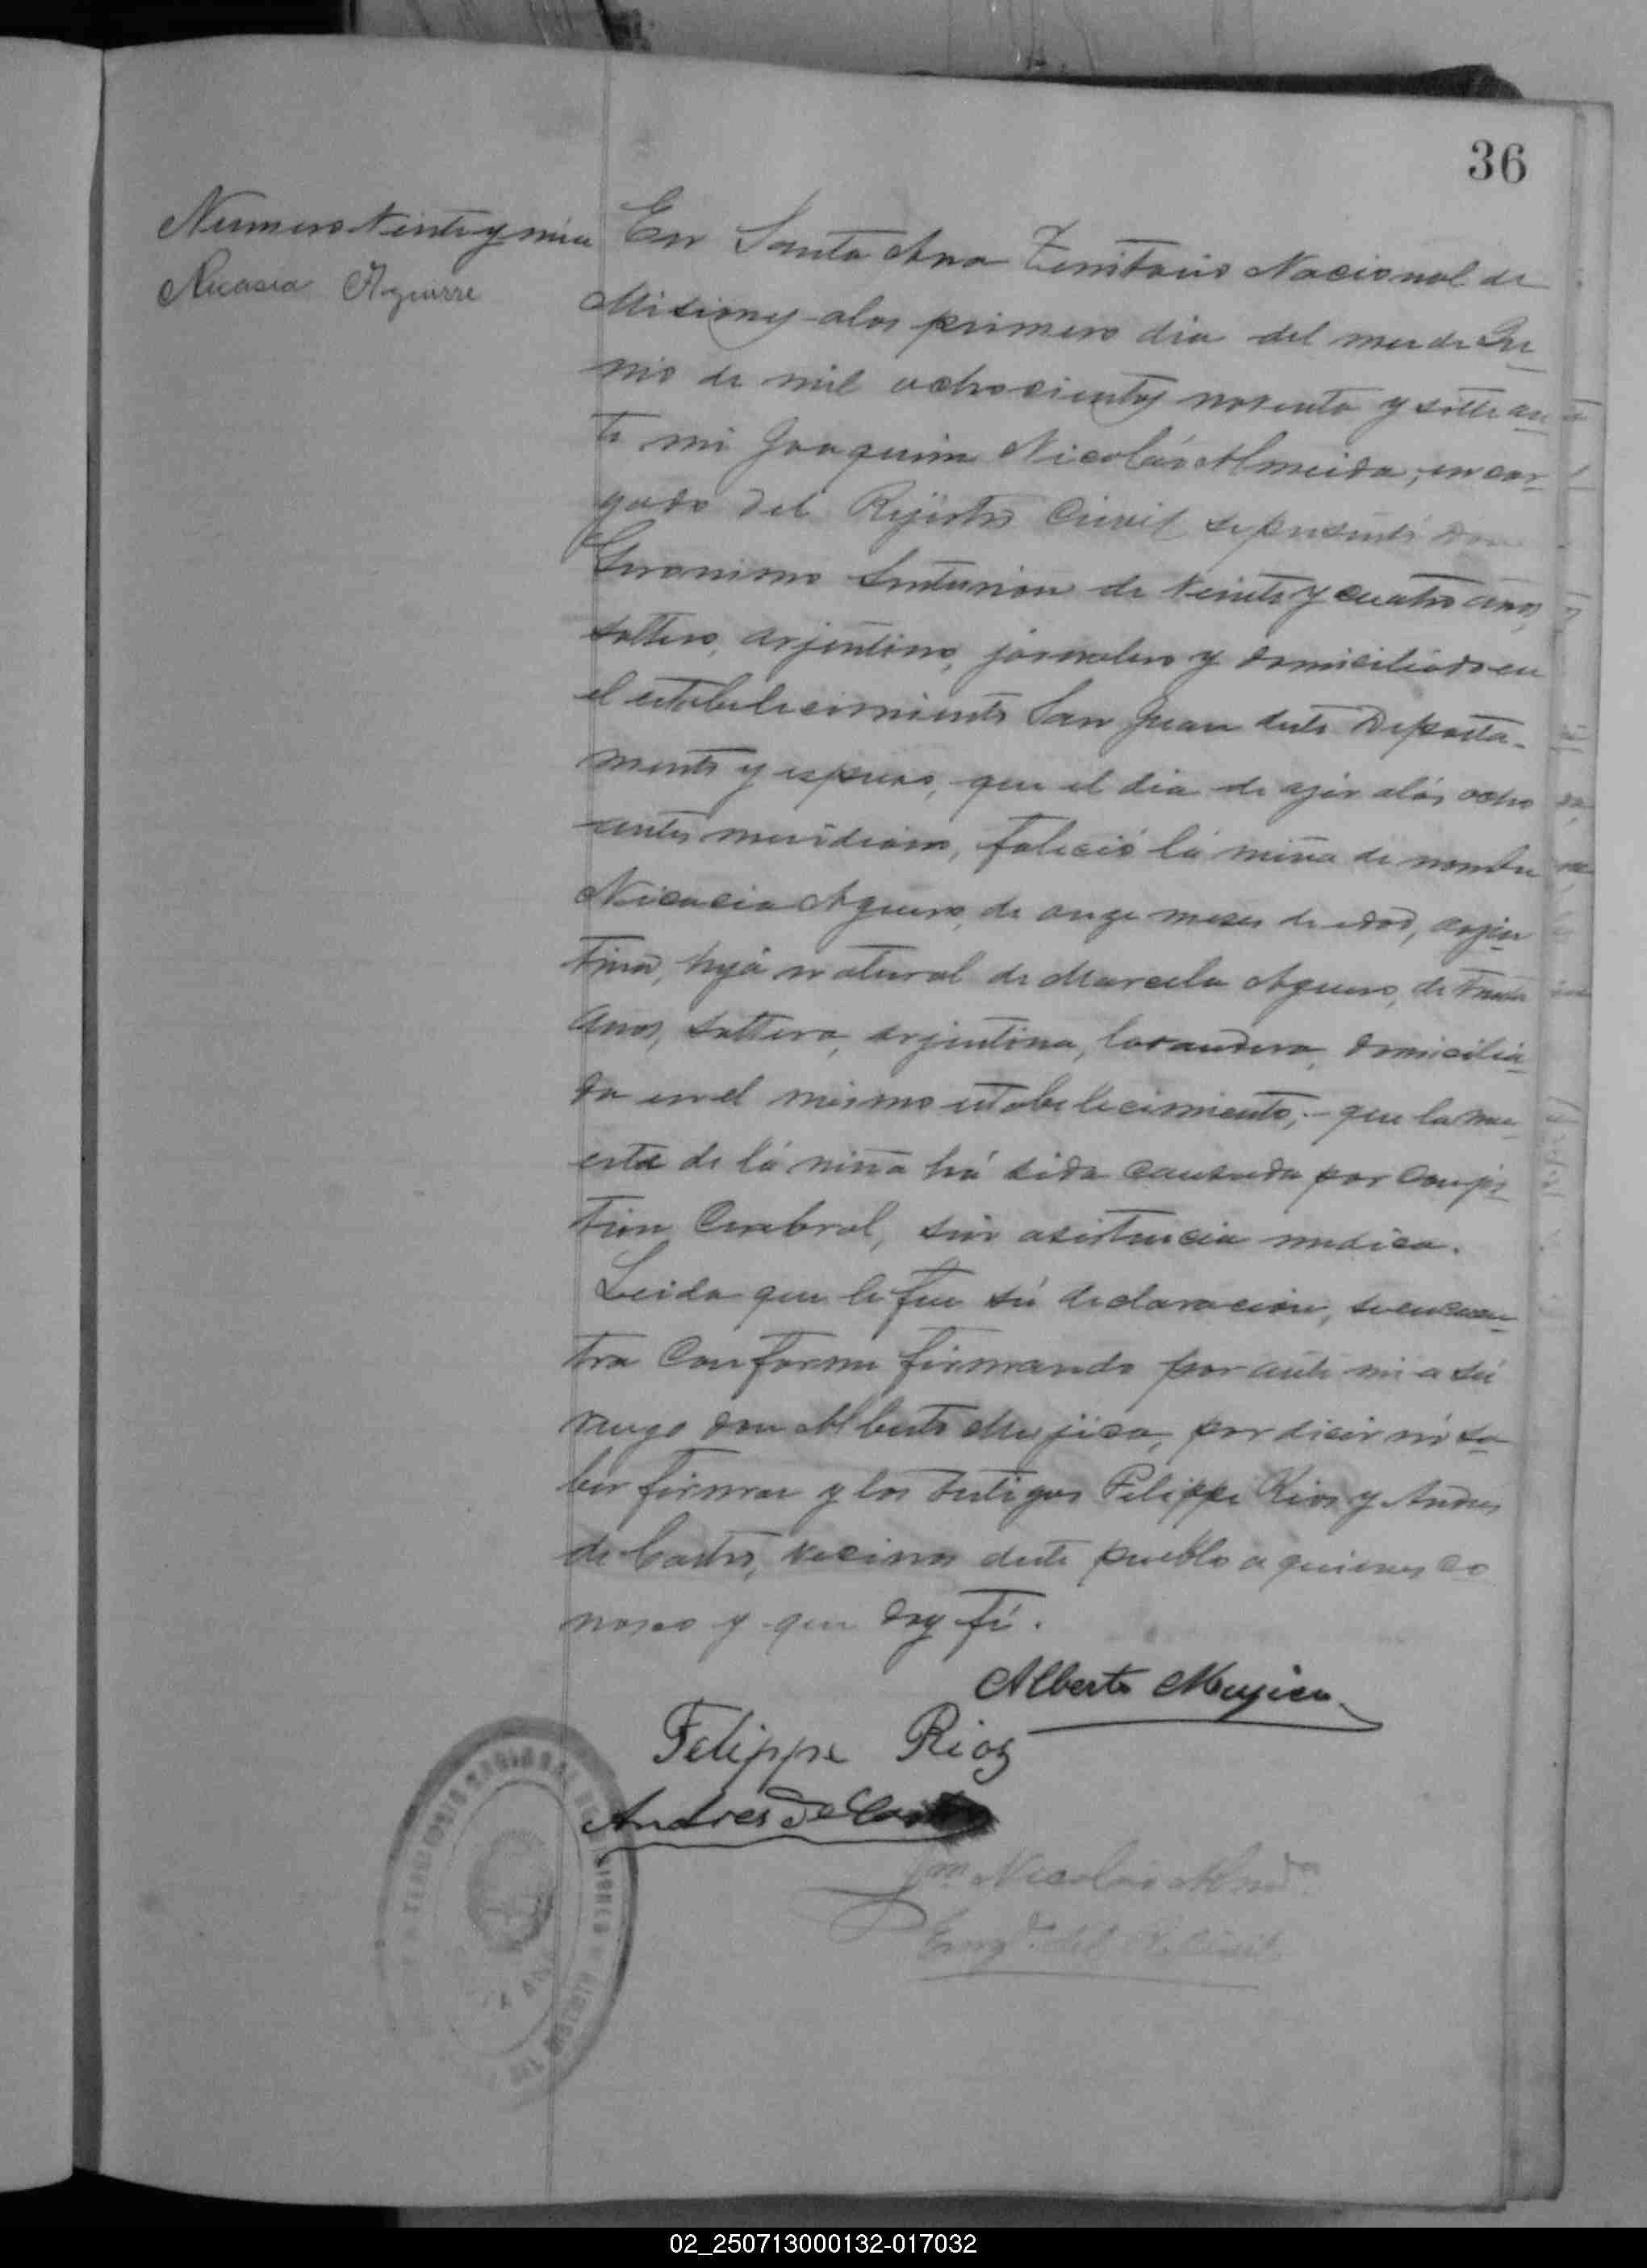 36
Numero Veinte y
Nicasia Aguirre
En Santa Ana Territorio Nacional de
Misiones alos primero dia del mes de Ju
nio de mil ochocientos noventa y siette an
te mi Joaquim Nicolás Almeida, encar
gado del Rejistro Civil se presentó Don
Geronimo Senturion de Veinte y cuatro años,
solttero, arjentino, jornalero y domiciliado en
el establecimiento San Juan deste Departa-
mento y espuso, que el dia de ajér alás ocho
antes meridiano, faleció lá niña de nombre
Nicacia Aguero, de onze meses de edad, arjen
tina, hija natural de Marcela Aguero, de trenta
anos, solttera, arjentina, lavandera, domicilia
da en el mismo establecimiento; - que la mu
erte de lá niña há sida causada por Conjes
tion Cerebral, sin asistencia medica.
Leida que le fue sú declaracion, se encuen
tra Conforme firmando por ante mi a sú
ruego don Alberto Mujica, por dicir nó sa
ber firmar y los testigos Felippe Rios y Andres
de Castro, vecinos deste pueblo a quienes co
nosco y que doy fé.
Alberto Mujica
Felippe Rios
Andres de Castro
Jm Nicolás Almda
Encgdo del R. Civil
02_250713000132-017032